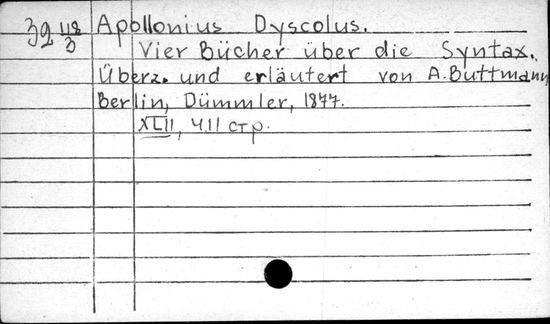 39 118/3 Apollonius Dyscolus.
Vier Bücher über die Syntax.
Überz. und erläutert von A. Buttmann
Berlin, Dümmler, 1877.
XLII, 411 стр.